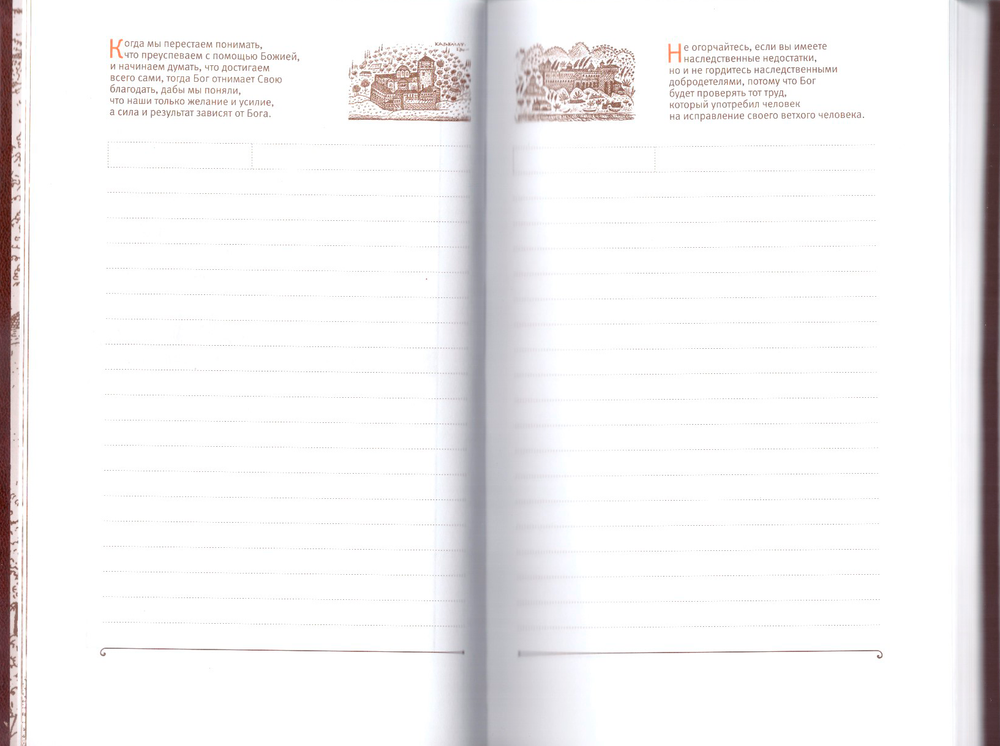 Когда мы перестаем понимать,
что преуспеваем с помощью Божией,
и начинаем думать, что достигаем
всего сами, тогда Бог отнимает Свою
благодать, дабы мы поняли,
что наши только желание и усилие,
а сила и результат зависят от Бога.
Не огорчайтесь, если вы имеете
наследственные недостатки,
но и не гордитесь наследственными
добродетелями, потому что Бог
будет проверять тот труд,
который употребил человек
на исправление своего ветхого человека.